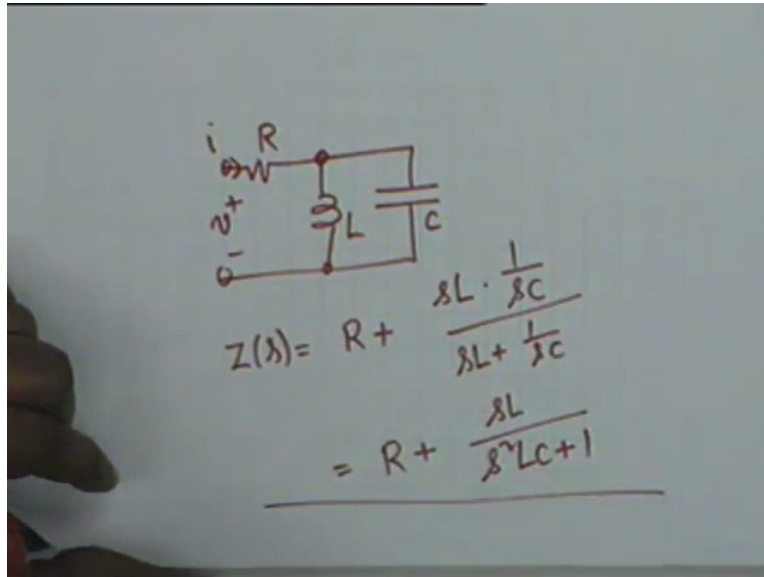 i R
v + - L C
Z(s) = R + (sL · 1/sC) / (sL + 1/sC)
= R + sL / (s²LC + 1)